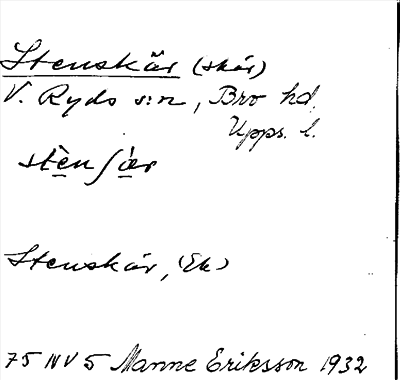 Stenskär (skär)
V. Ryds s:n, Bro hd,
Upps. l.
stèn ʃæ̀r
Stenskär, (Ek)
75 NV 5 Manne Eriksson 1932